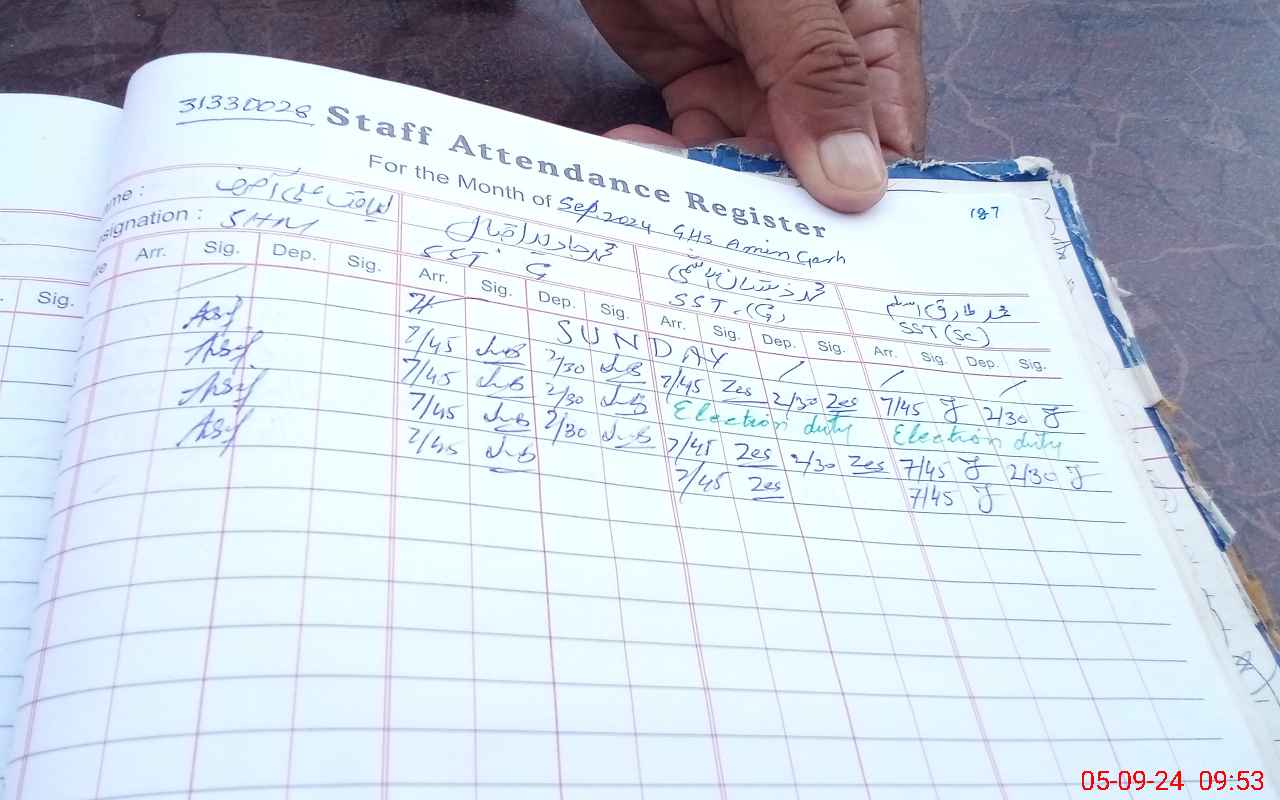 31330028 Staff Attendance Register
For the Month of Sep 2024 GHS Amin Garh
187
ame : لیاقت علی آصف محمد جاوید اقبال محمد ذیشان ہاشمی محمد طارق اسلم
signation : SHM SST G SST (G) SST (Sc)
Arr. Sig. Dep. Sig. Arr. Sig. Dep. Sig. Arr. Sig. Dep. Sig. Arr. Sig. Dep. Sig.
Sig.
SUNDAY
7/45 2/30 7/45 Zes 2/30 Zes 7/45 2/30
7/45 2/30 Election duty Election duty
7/45 2/30 7/45 Zes 2/30 Zes 7/45 2/30
7/45 7/45 Zes 7/45
05-09-24 09:53